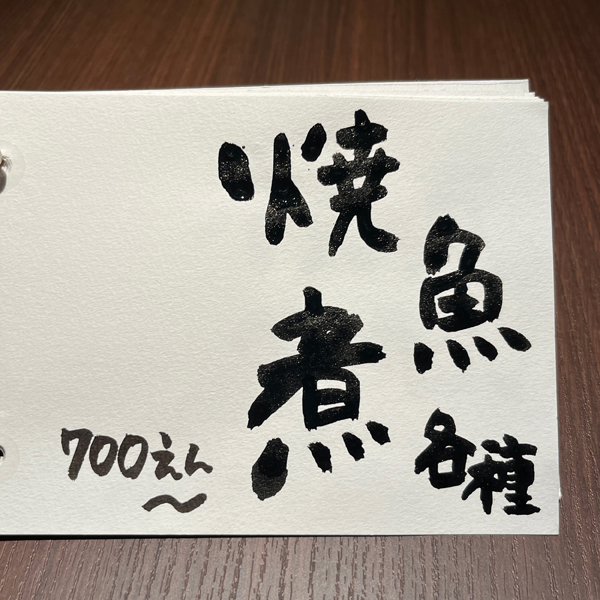 魚
各種
焼
煮
700えん〜